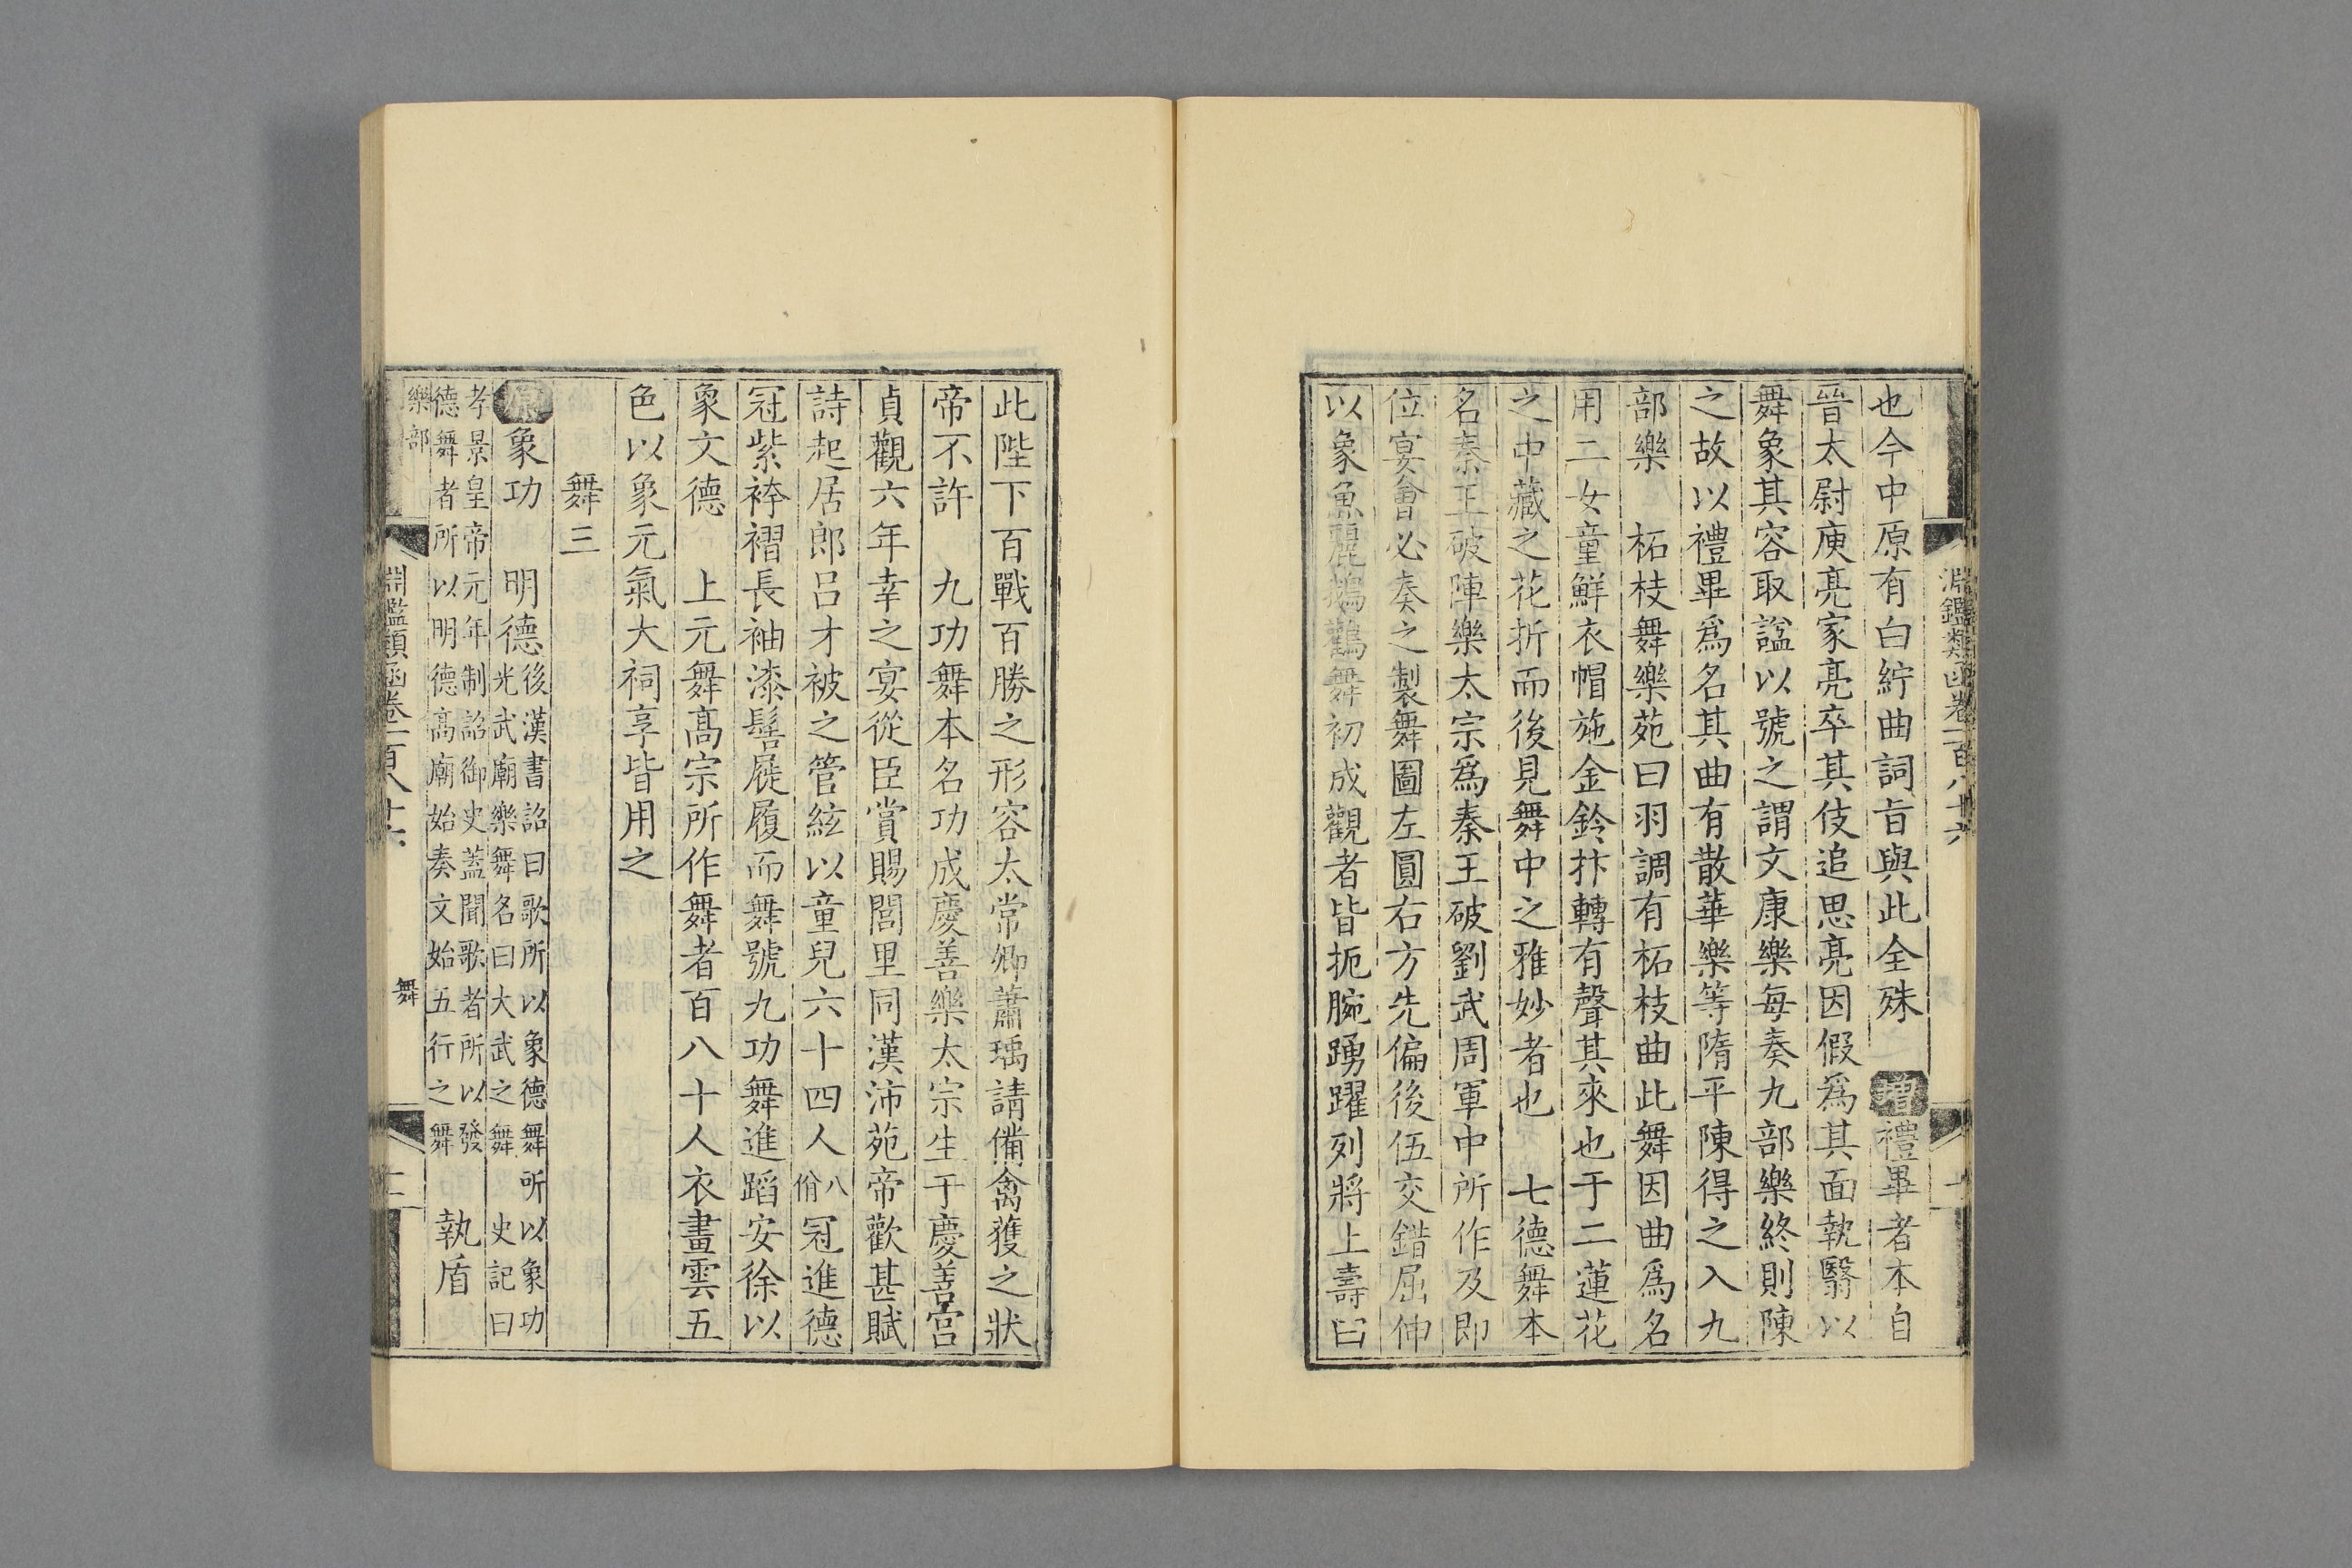 淵鑑類函卷一百八十六
也今中原有白紵曲詞旨與此全殊 增禮畢者本自
晉太尉庾亮家亮卒其伎追思亮因假爲其面執翳以
舞象其容取諡以號之謂文康樂每奏九部樂終則陳
之故以禮畢爲名其曲有散華樂等隋平陳得之入九
部樂 柘枝舞樂苑曰羽調有柘枝曲此舞因曲爲名
用二女童鮮衣帽施金鈴抃轉有聲其來也于二蓮花
之中藏之花折而後見舞中之雅妙者也 七德舞本
名秦王破陣樂太宗爲秦王破劉武周軍中所作及即
位宴會必奏之製舞圖左圓右方先偏後伍交錯屈伸
以象魚麗鵝鸛舞初成觀者皆扼腕踴躍列將上壽曰
此陛下百戰百勝之形容太常卿蕭瑀請備禽獲之狀
帝不許 九功舞本名功成慶善樂太宗生于慶善宮
貞觀六年幸之宴從臣賞賜閭里同漢沛苑帝歡甚賦
詩起居郎呂才被之管絃以童兒六十四人八佾冠進德
冠紫袴褶長袖漆髻屣履而舞號九功舞進蹈安徐以
象文德 上元舞高宗所作舞者百八十人衣畫雲五
色以象元氣大祠享皆用之
舞三
原象功 明德後漢書詔曰歌所以象德舞所以象功
光武廟樂舞名曰大武之舞 史記曰
孝景皇帝元年制詔御史蓋聞歌者所以發
德舞者所以明德高廟始奏文始五行之舞 執盾
樂部
淵鑑類函卷一百八十六 舞 十一